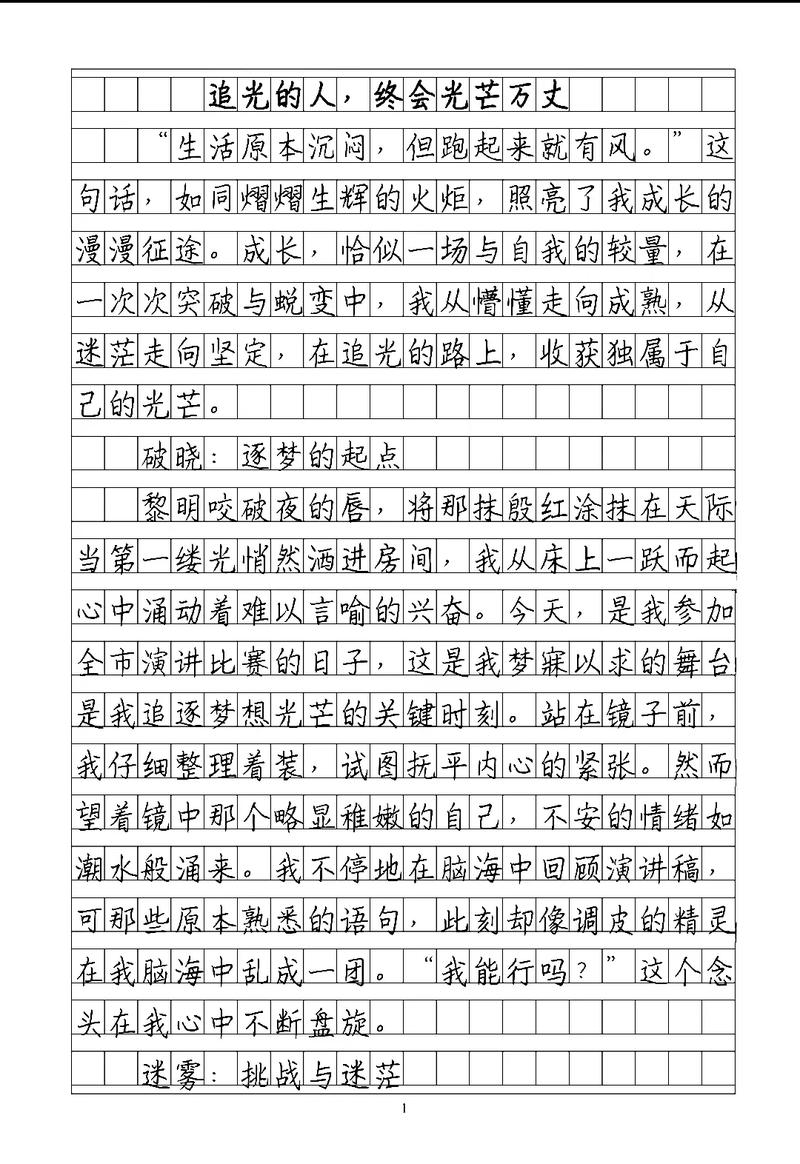 追光的人，终会光芒万丈
“生活原本沉闷，但跑起来就有风。”这
句话，如同熠熠生辉的火炬，照亮了我成长的
漫漫征途。成长，恰似一场与自我的较量，在
一次次突破与蜕变中，我从懵懂走向成熟，从
迷茫走向坚定，在追光的路上，收获独属于自
己的光芒。
破晓：逐梦的起点
黎明咬破夜的唇，将那抹殷红涂抹在天际
当第一缕光悄然洒进房间，我从床上一跃而起
心中涌动着难以言喻的兴奋。今天，是我参加
全市演讲比赛的日子，这是我梦寐以求的舞台
是我追逐梦想光芒的关键时刻。站在镜子前，
我仔细整理着装，试图抚平内心的紧张。然而
望着镜中那个略显稚嫩的自己，不安的情绪如
潮水般涌来。我不停地在脑海中回顾演讲稿，
可那些原本熟悉的语句，此刻却像调皮的精灵
在我脑海中乱成一团。“我能行吗？”这个念
头在我心中不断盘旋。
迷雾：挑战与迷茫
1